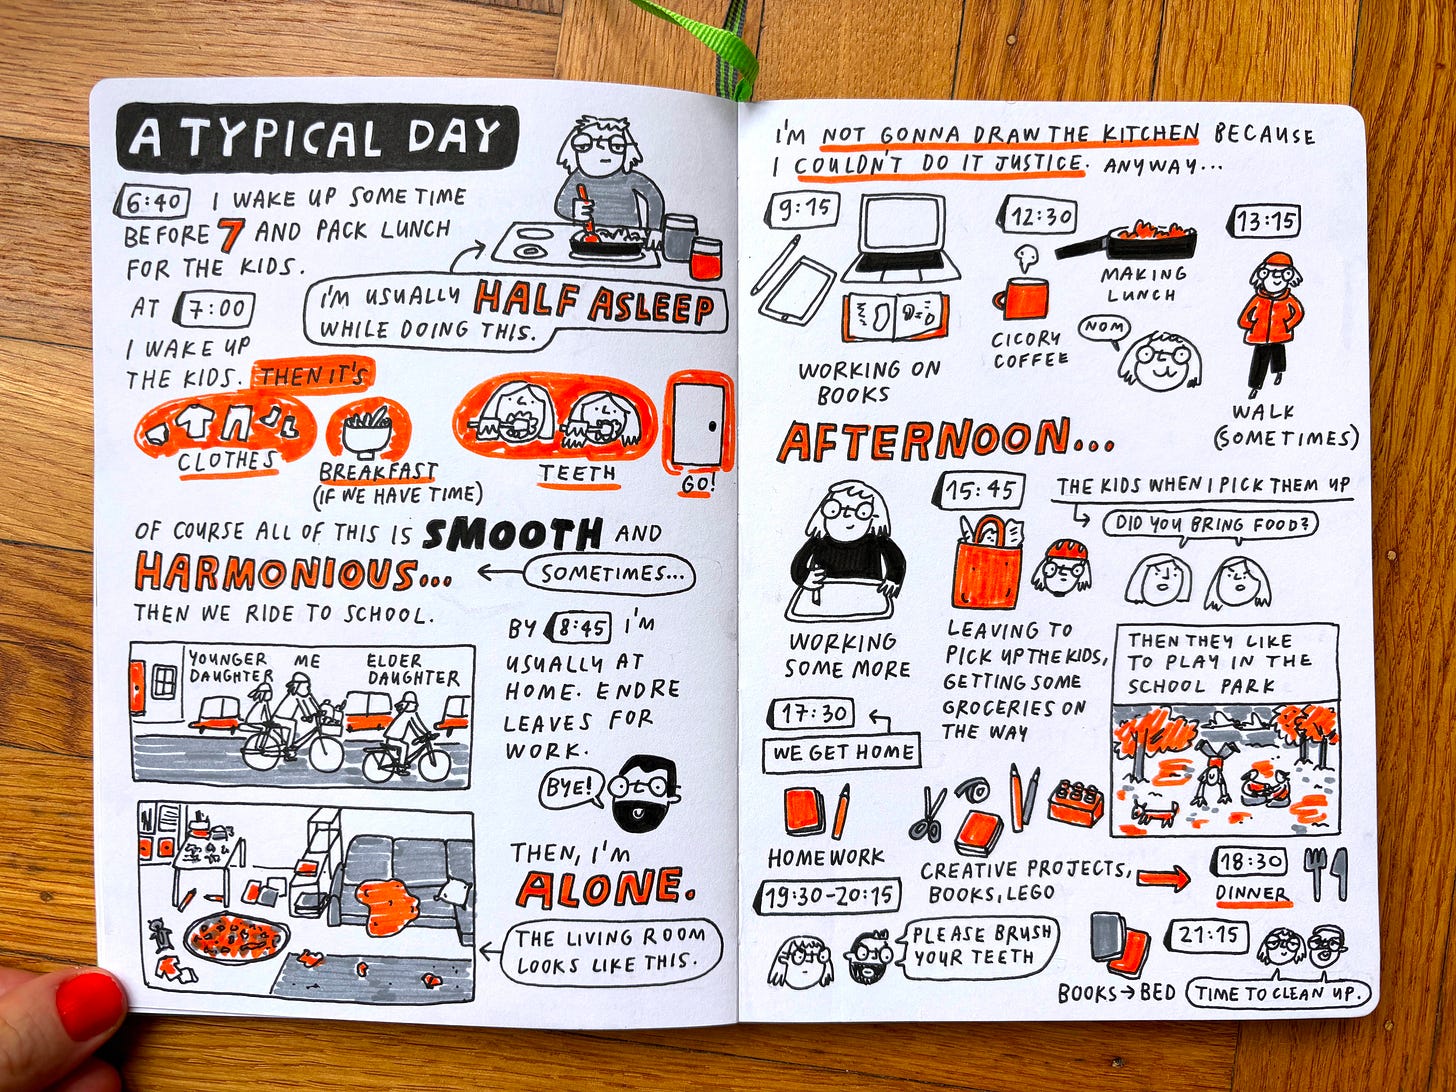 A TYPICAL DAY
6:40 I WAKE UP SOME TIME
BEFORE 7 AND PACK LUNCH
FOR THE KIDS.
I'M USUALLY HALF ASLEEP
WHILE DOING THIS.
AT 7:00
I WAKE UP
THE KIDS. THEN IT'S
CLOTHES
BREAKFAST
(IF WE HAVE TIME)
TEETH
GO!
OF COURSE ALL OF THIS IS SMOOTH AND
HARMONIOUS...
SOMETIMES...
THEN WE RIDE TO SCHOOL.
YOUNGER
DAUGHTER
ME
ELDER
DAUGHTER
BY 8:45 I'M
USUALLY AT
HOME. ENDRE
LEAVES FOR
WORK.
BYE!
THEN, I'M
ALONE.
THE LIVING ROOM
LOOKS LIKE THIS.
I'M NOT GONNA DRAW THE KITCHEN BECAUSE
I COULDN'T DO IT JUSTICE. ANYWAY...
9:15
WORKING ON
BOOKS
12:30
CICORY
COFFEE
MAKING
LUNCH
NOM
13:15
WALK
(SOMETIMES)
AFTERNOON...
WORKING
SOME MORE
15:45
LEAVING TO
PICK UP THE KIDS,
GETTING SOME
GROCERIES ON
THE WAY
THE KIDS WHEN I PICK THEM UP
DID YOU BRING FOOD?
THEN THEY LIKE
TO PLAY IN THE
SCHOOL PARK
17:30
WE GET HOME
HOMEWORK
CREATIVE PROJECTS,
BOOKS, LEGO
18:30
DINNER
19:30-20:15
PLEASE BRUSH
YOUR TEETH
BOOKS→BED
21:15
TIME TO CLEAN UP.